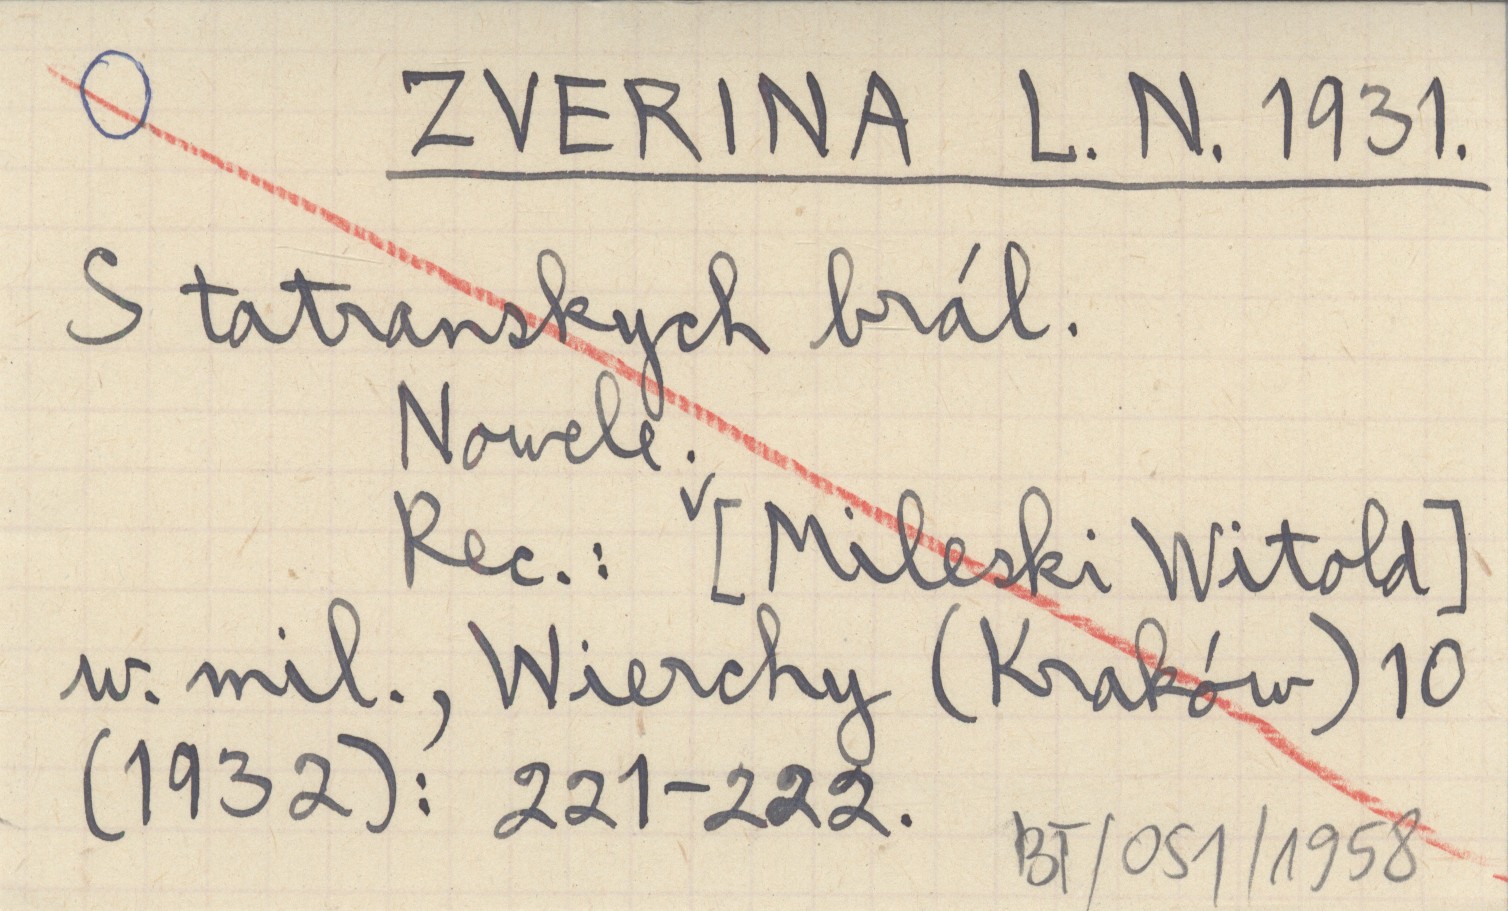 ZVERINA L. N. 1931.
S tatranskych brál.
Nowele.
Rec.: [Mileski Witold]
w. mil., Wierchy (Kraków) 10
(1932): 221-222.
BT/051/1958